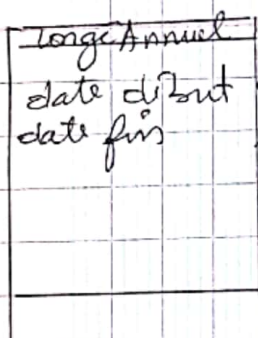 CongéAnnuel
date début
date fin